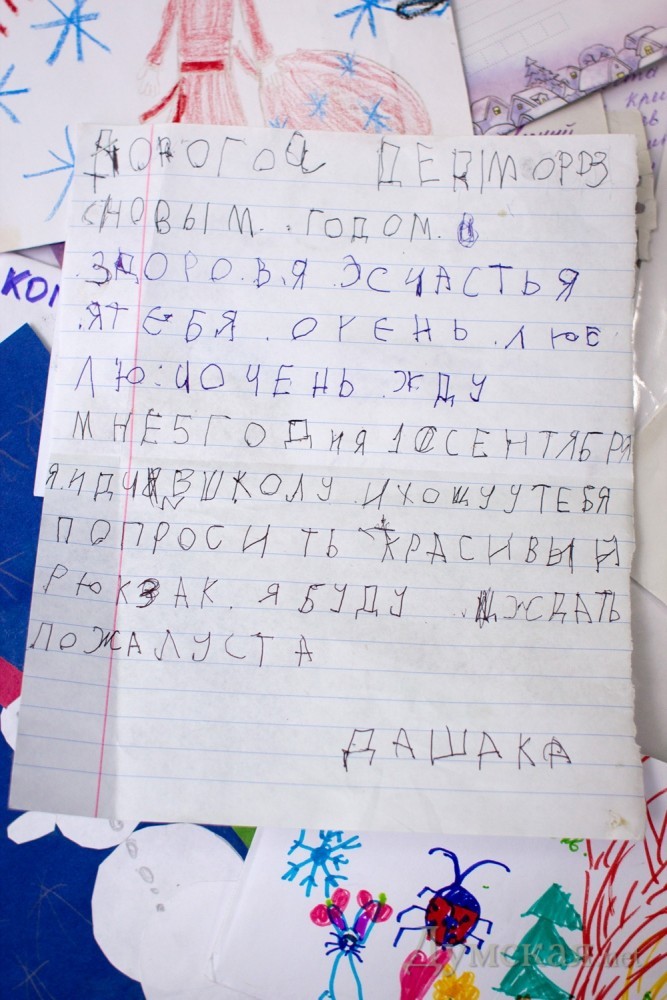 ДОРОГОЙ ДЕДМОРОЗ
СНОВЫМ. ГОДОМ.
ЗДОРОВ.Я ЭСЧАСТЬЯ
.ЯТЕБЯ. ОЧЕНЬ. ЛЮБ
ЛЮ: ИОЧЕНЬ. ЖДУ
МНЕ5ГОДИЯ 1 СЕНТЯБРЯ
Я.ИДУ ВШКОЛУ. ИХОЩУ УТЕБЯ
ПОПРОСИ ТЬ КРАСИВЫЙ
РЮКЗАК. Я БУДУ ЖДАТЬ
ПОЖАЛУСТА
ДАШАКА
Думская.net